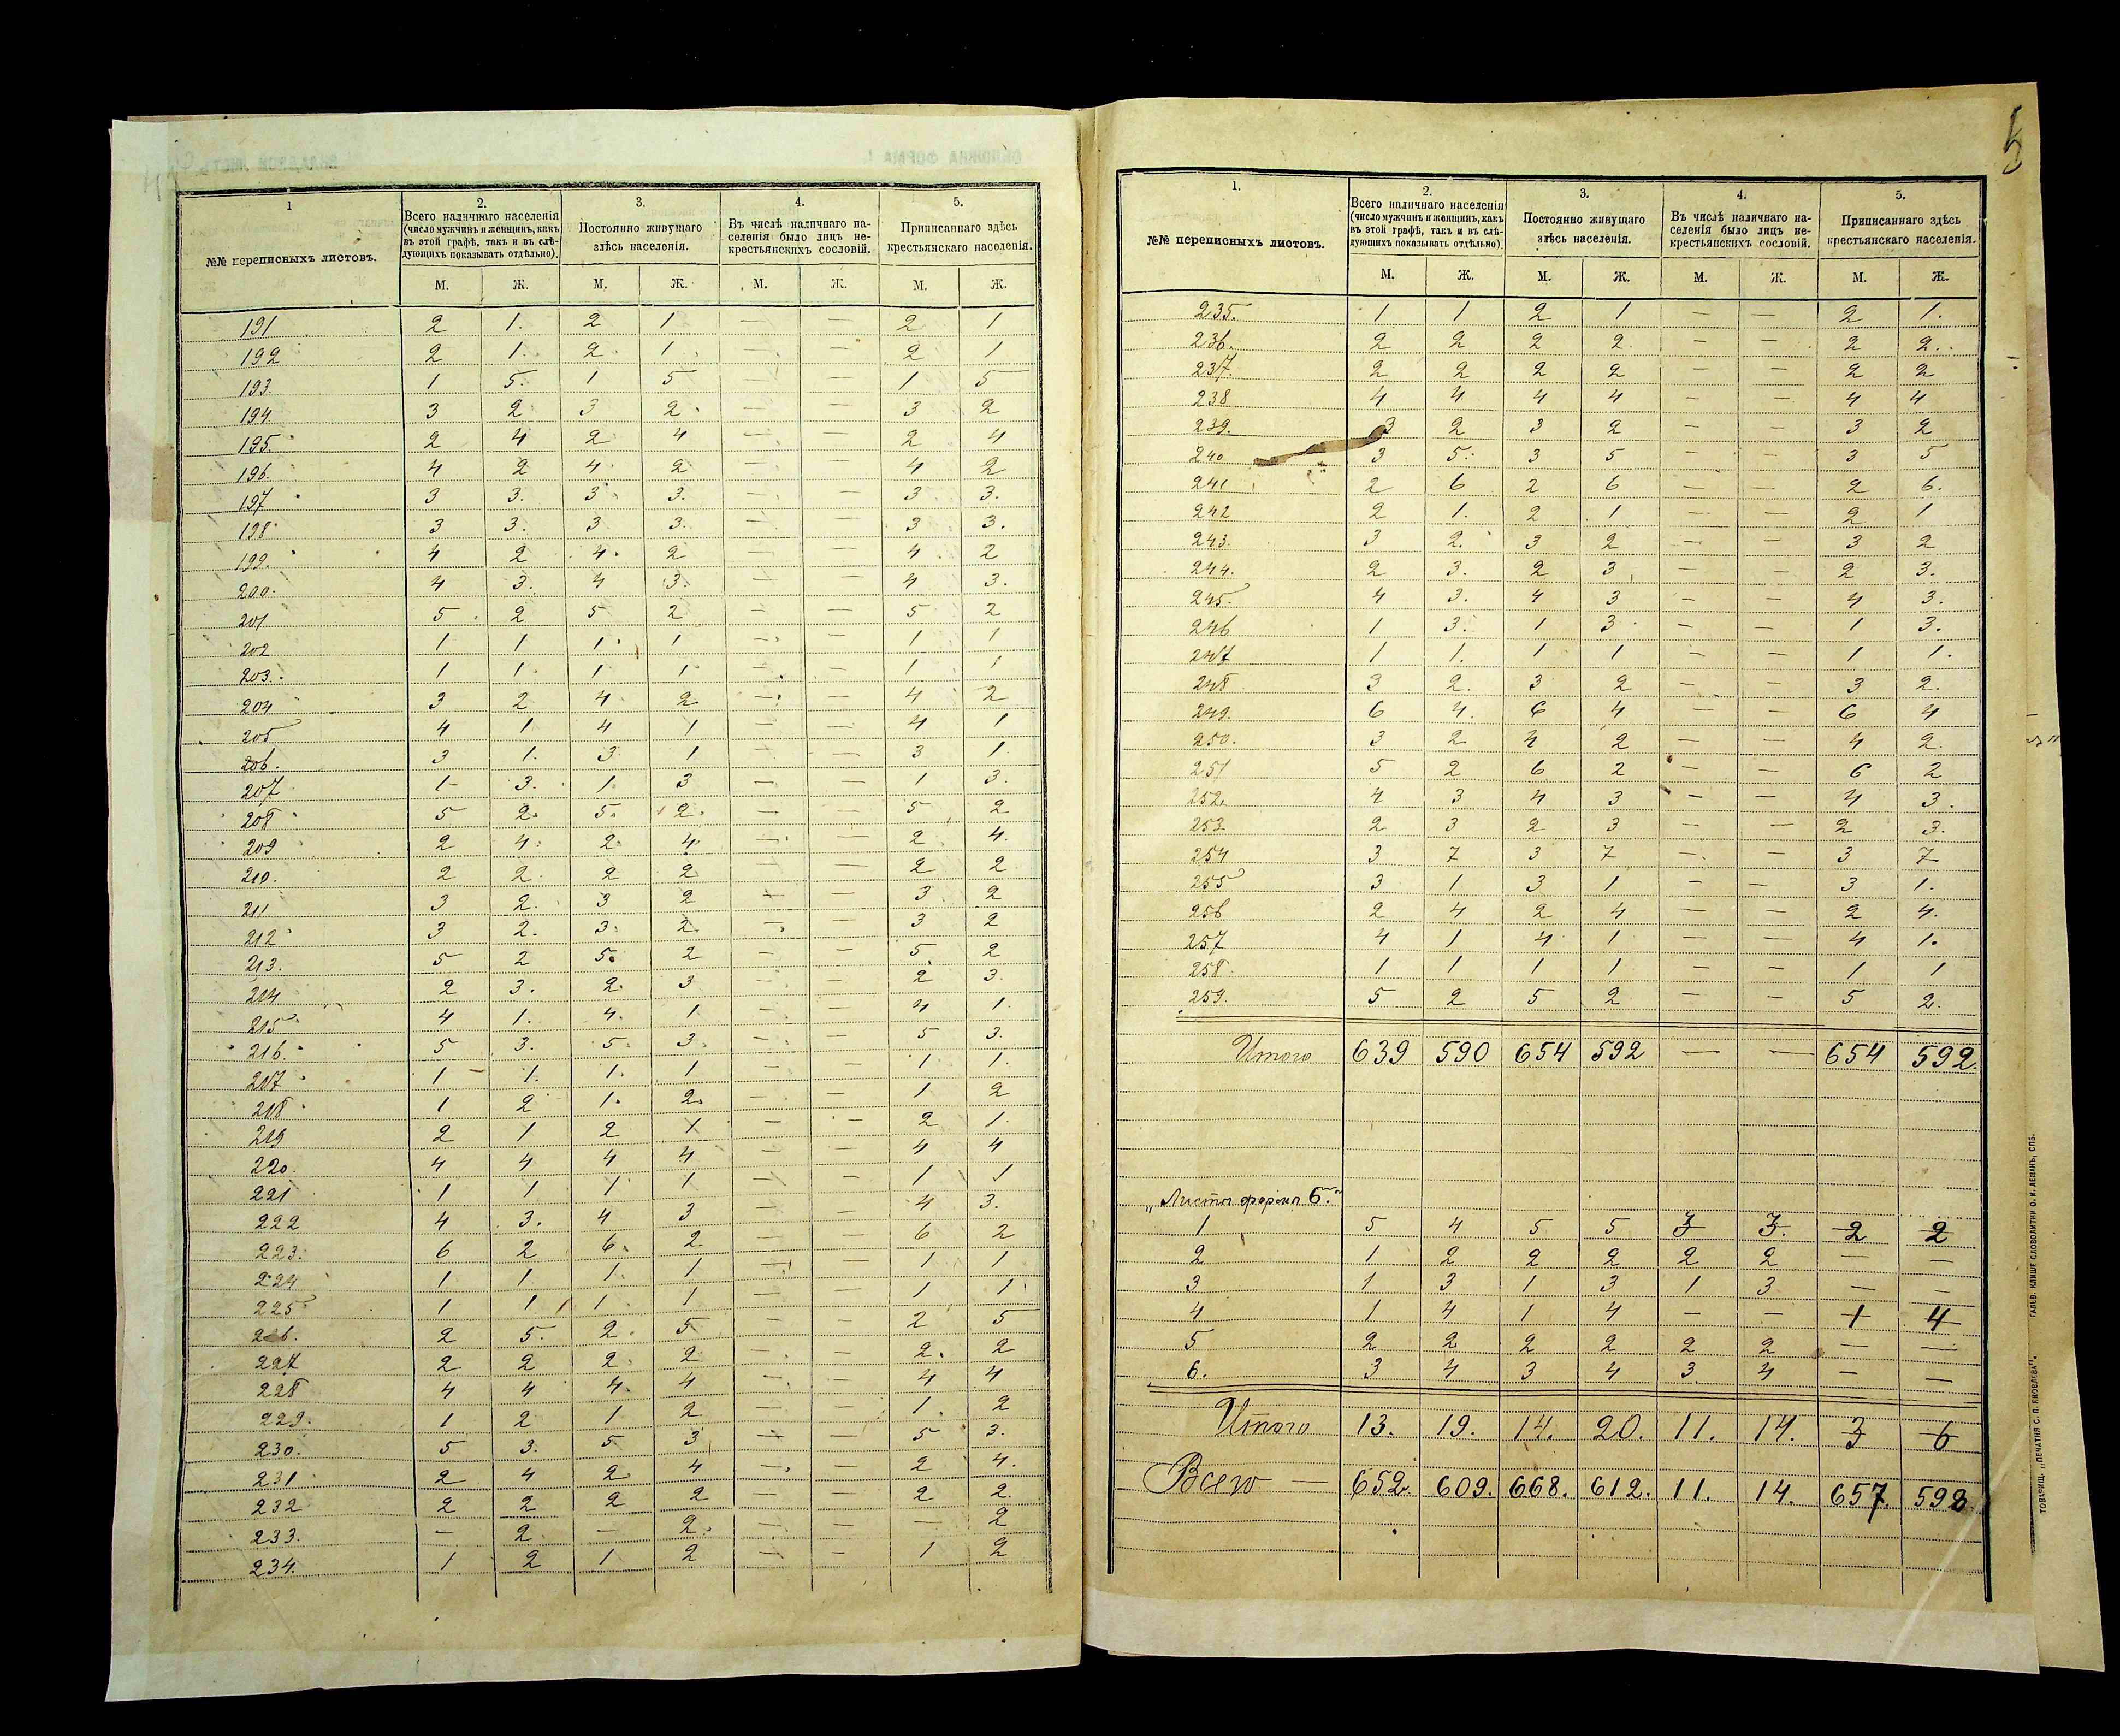 1
2.
3.
4.
5.
№№ переписныхъ листовъ.
Всего наличнаго населенія (число мужчинъ и женщинъ, какъ въ этой графѣ, такъ и въ слѣдующихъ показывать отдѣльно).
Постоянно живущаго здѣсь населенія.
Въ числѣ наличнаго населенія было лицъ не-крестьянскихъ сословій.
Приписаннаго здѣсь крестьянскаго населенія.
М. Ж. М. Ж. М. Ж. М. Ж.
191 2 1. 2 1 — — 2 1
192 2 1. 2. 1. — — 2 1
193. 1 5. 1 5 — — 1 5
194. 3 2 3 2. — — 3 2
195. 2 4 2 4 — — 2 4
196. 4 2 4. 2 — — 4 2
197 3 3. 3. 3. — — 3. 3.
198 3 3. 3 3. — — 3 3.
199. 4 2 4. 2 — — 4 2
200. 4 3. 4 3. — — 4 3.
201 5. 2 5 2 — — 5 2
202 1 1 1. 1 — — 1 1
203. 1 1. 1 1. — — 1 1
204 3 2 4. 2 — — 4 2
205 4 1 4 1 — — 4 1
206. 3 1. 3. 1 — — 3 1.
207 1 3. 1. 3 — — 1 3.
208 5 2. 5. 2. — — 5 2
209 2 4. 2. 4. — — 2 4.
210. 2 2. 2 2 — — 2 2
211 3 2. 3 2 — — 3 2
212 3 2. 3. 2. — — 3 2
213. 5 2 5. 2 — — 5. 2
214 2 3. 2. 3 — — 2 3.
215 4 1. 4. 1. — — 4 1.
216. 5 3. 5. 3. — — 5 3.
217 1 1. 1. 1 — — 1 1.
218 1. 2 1. 2. — — 1 2
219 2 1 2 1. — — 2 1.
220. 4 4 4 4 — — 4 4
221 1 1 1 1 — — 1 1
222 4 3. 4 3 — — 4 3.
223. 6 2 6. 2 — — 6 2
224 1 1 1. 1 — — 1 1
225 1 1 1. 1 — — 1 1
226. 2 5. 2. 5 — — 2 5
227 2 2 2. 2 — — 2. 2
228 4 4 4. 4 — — 4 4
229. 1 2 1 2 — — 1. 2
230. 5 3. 5 3 — — 5 3.
231 2 4 2. 4 — — 2 4.
232 2 2 2 2 — — 2 2.
233. — 2. — 2. — — — 2
234. 1 2 1 2 — — 1 2
5
1.
2.
3.
4.
5.
№№ переписныхъ листовъ.
Всего наличнаго населенія (число мужчинъ и женщинъ, какъ въ этой графѣ, такъ и въ слѣдующихъ показывать отдѣльно).
Постоянно живущаго здѣсь населенія.
Въ числѣ наличнаго населенія было лицъ не-крестьянскихъ сословій.
Приписаннаго здѣсь крестьянскаго населенія.
М. Ж. М. Ж. М. Ж. М. Ж.
235. 1 1 2 1 — — 2 1.
236. 2 2 2 2 — — 2 2.
237. 2 2 2 2 — — 2 2
238 4 4 4 4 — — 4 4
239. 3 2 3 2 — — 3 2
240 3 5. 3 5 — — 3 5
241 2 6 2 6 — — 2 6.
242 2 1. 2 1 — — 2 1
243. 3 2. 3 2 — — 3 2
244. 2 3. 2 3 — — 2 3.
245. 4 3. 4 3 — — 4 3.
246 1 3. 1 3 — — 1 3.
247 1 1. 1 1 — — 1 1.
248 3 2. 3 2 — — 3 2.
249. 6 4. 6 4 — — 6 4
250. 3 2 4 2 — — 4 2.
251 5 2 6 2 — — 6 2
252. 4 3 4 3 — — 4 3.
253. 2 3 2 3 — — 2 3.
254 3 7 3 7 — — 3 7
255 3 1 3 1 — — 3 1.
256 2 4 2 4 — — 2 4.
257 4 1 4 1 — — 4 1.
258. 1 1 1 1 — — 1 1
259. 5 2 5 2 — — 5 2.
Итого 639 590 654 592 — — 654 592.
„Листы форма Б."
1 5 4 5 5 3 3. 2 2
2 1 2 2 2 2 2 — —
3 1 3 1 3 1 3 — —
4 1 4 1 4 — — 1 4
5 2 2 2 2 2 2 — —
6. 3 4 3 4 3. 4 — —
Итого 13. 19. 14. 20. 11. 14. 3 6
Всего — 652. 609. 668. 612. 11. 14. 657. 598
ТОВАРИЩ. „ПЕЧАТНЯ С. П. ЯКОВЛЕВА". ГАЛЬВ. КЛИШЕ СЛОВОЛИТНИ О. И. ЛЕМАНЪ, СПБ.